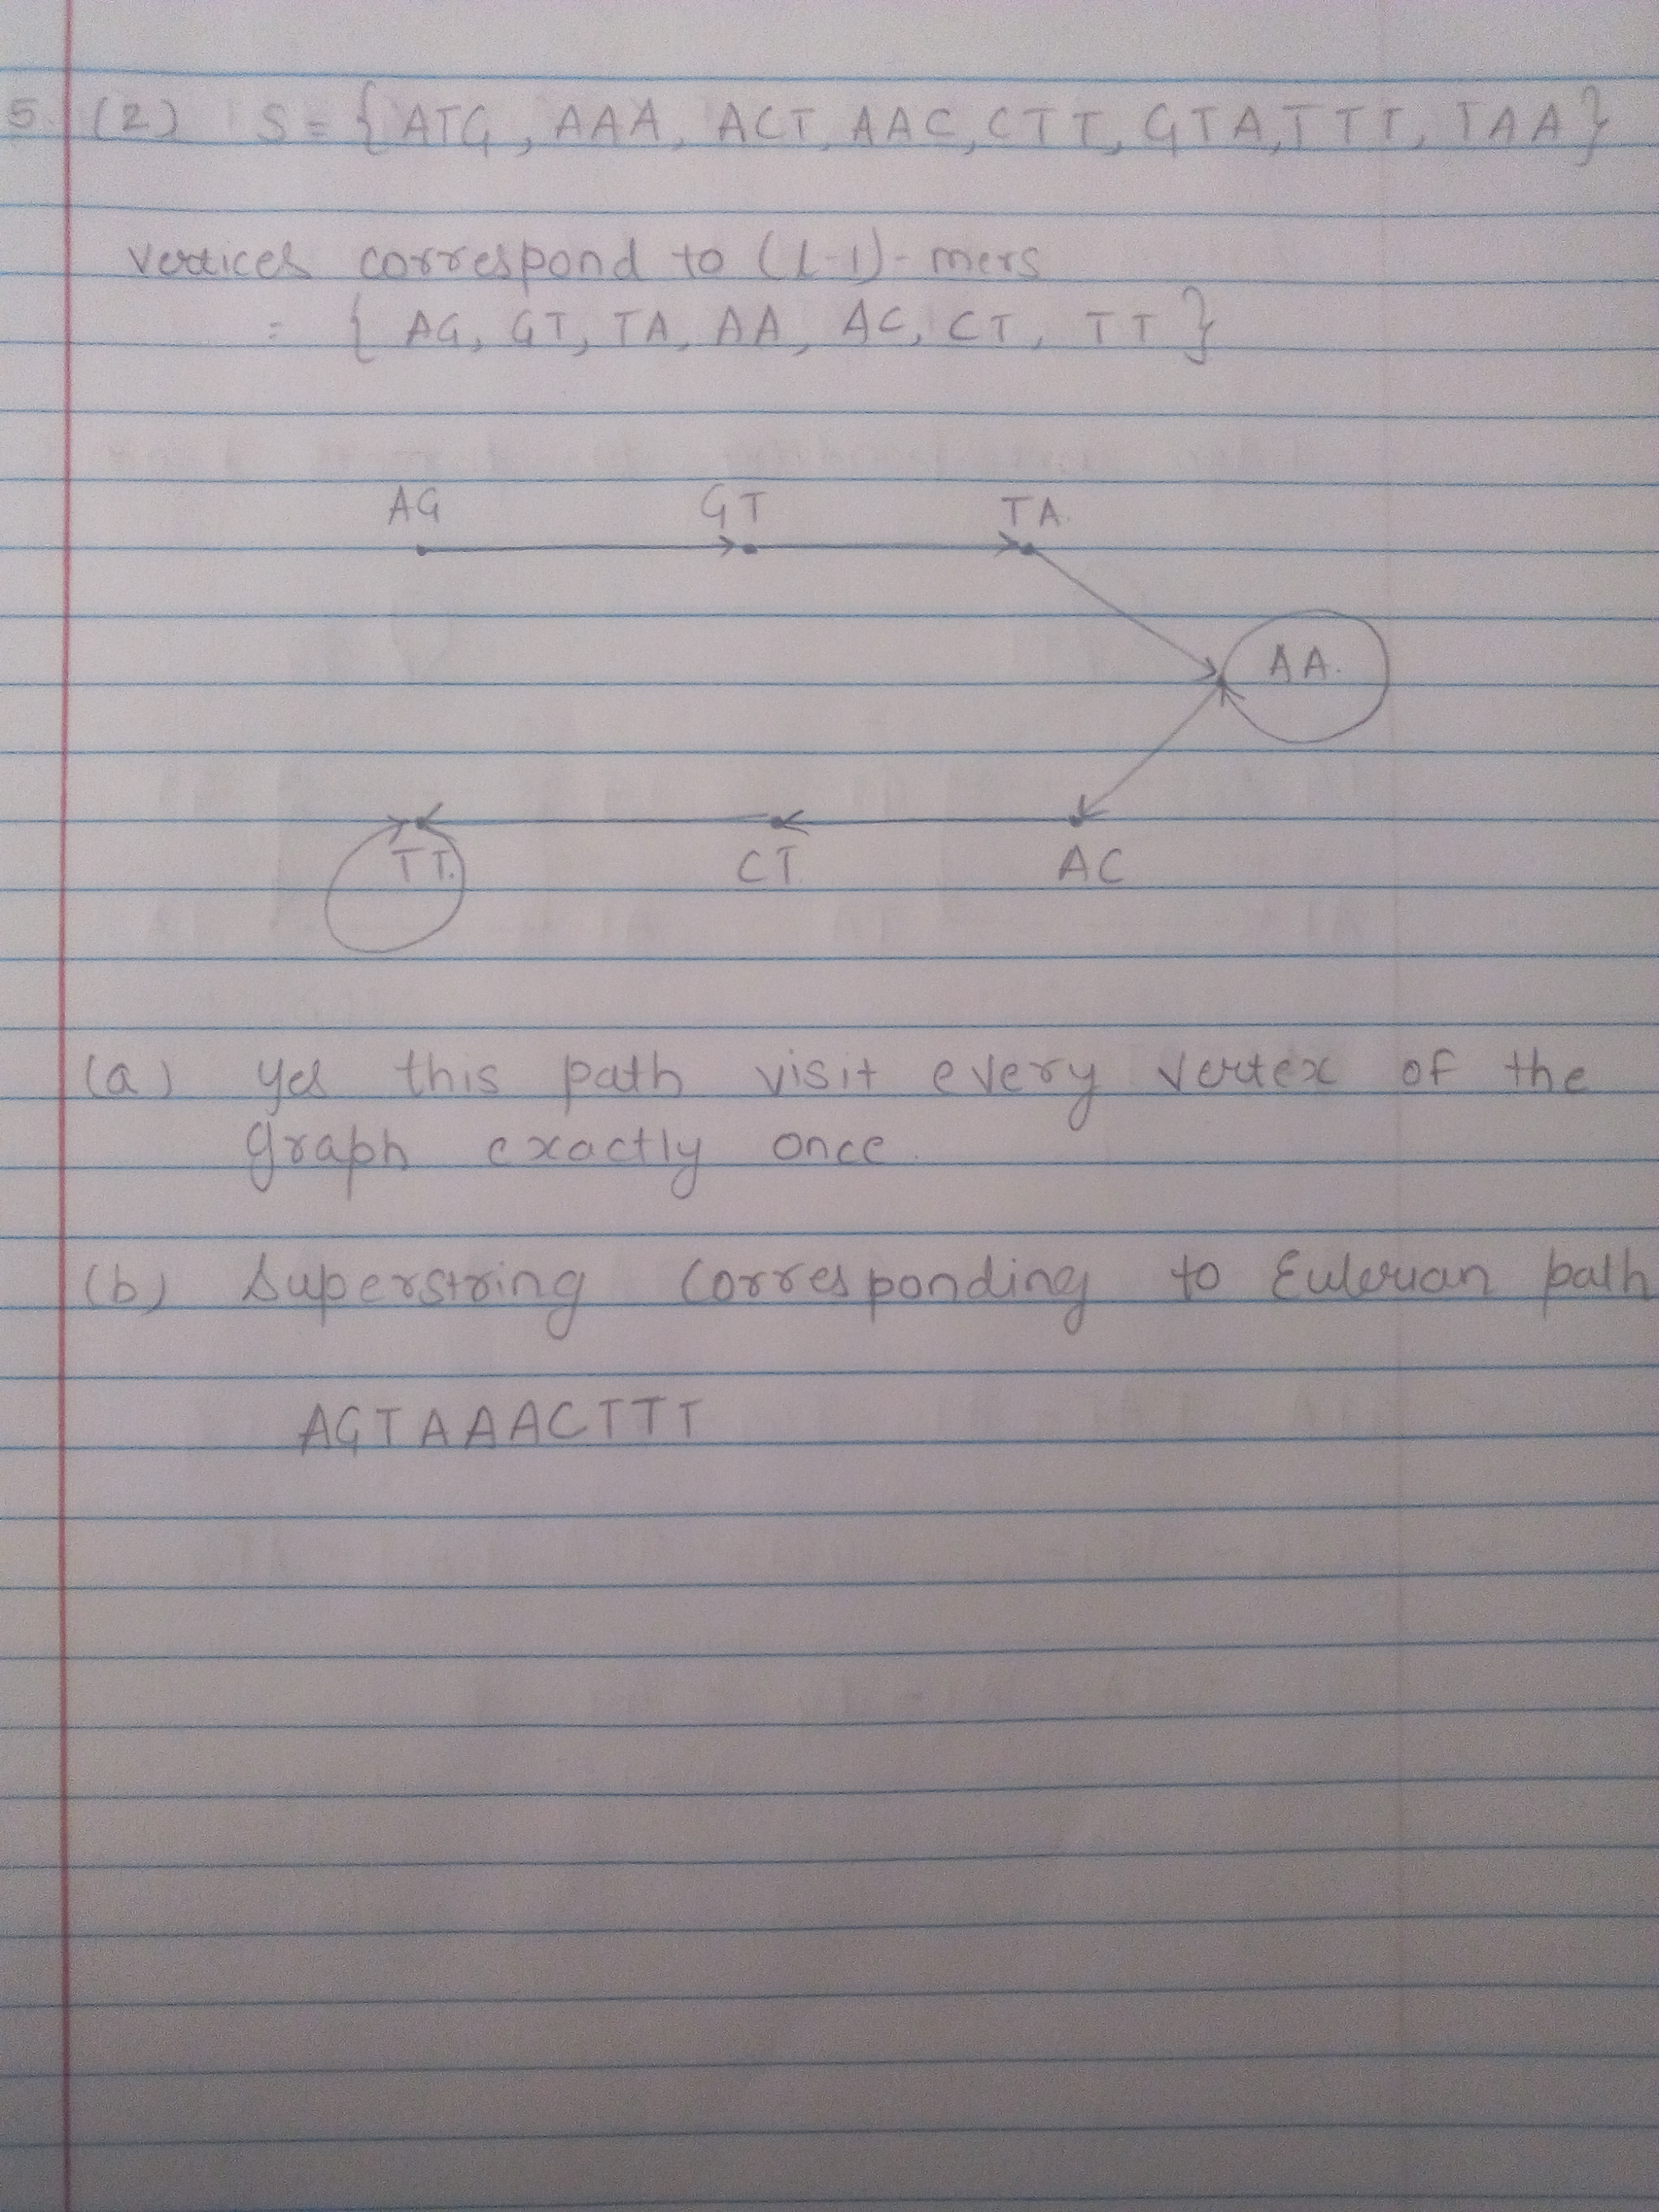 5. (2) S = { ATG, AAA, ACT, AAC, CTT, GTA, TTT, TAA }
vertices correspond to (l-1)-mers
= { AG, GT, TA, AA, AC, CT, TT }
AG GT TA.
AA.
TT. CT AC
(a) yes this path visit every vertex of the
graph exactly once.
(b) Superstring corresponding to Eulerian path
AGTAAACTTT